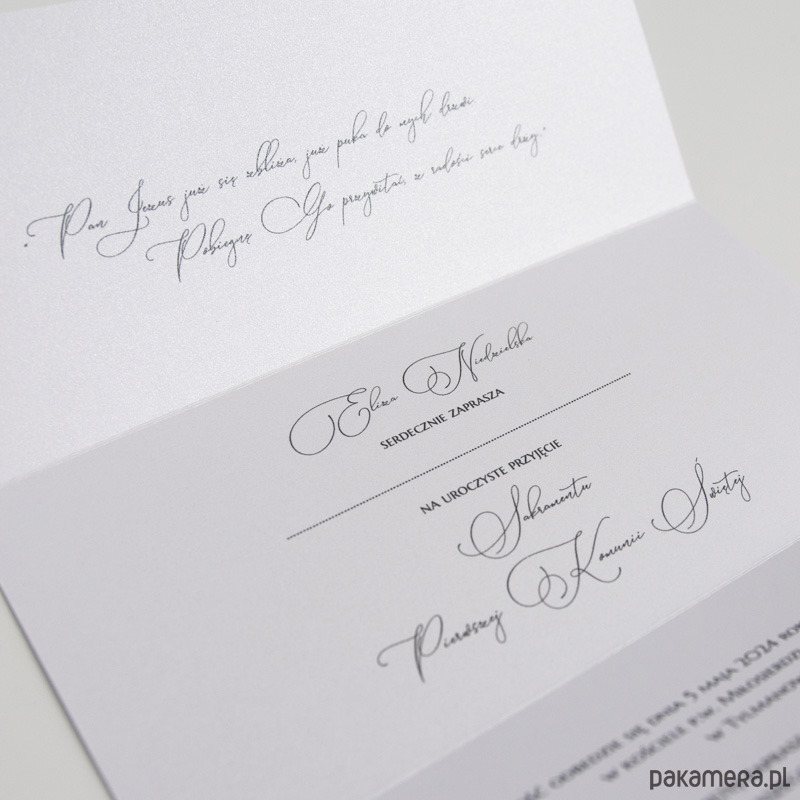 „Pan Jezus już się zbliża, już puka do mych drzwi
Pobiegnę Go przywitać, z radości serce drży.”
Eliza Niedzielska
SERDECZNIE ZAPRASZA
NA UROCZYSTE PRZYJĘCIE
Sakramentu
Pierwszej Komunii Świętej
ODBĘDZIE SIĘ DNIA 5 MAJA 2024 ROK
W KOŚCIELE P.W. MIŁOSIERDZI
W TYLMANOW
pakamera.pl